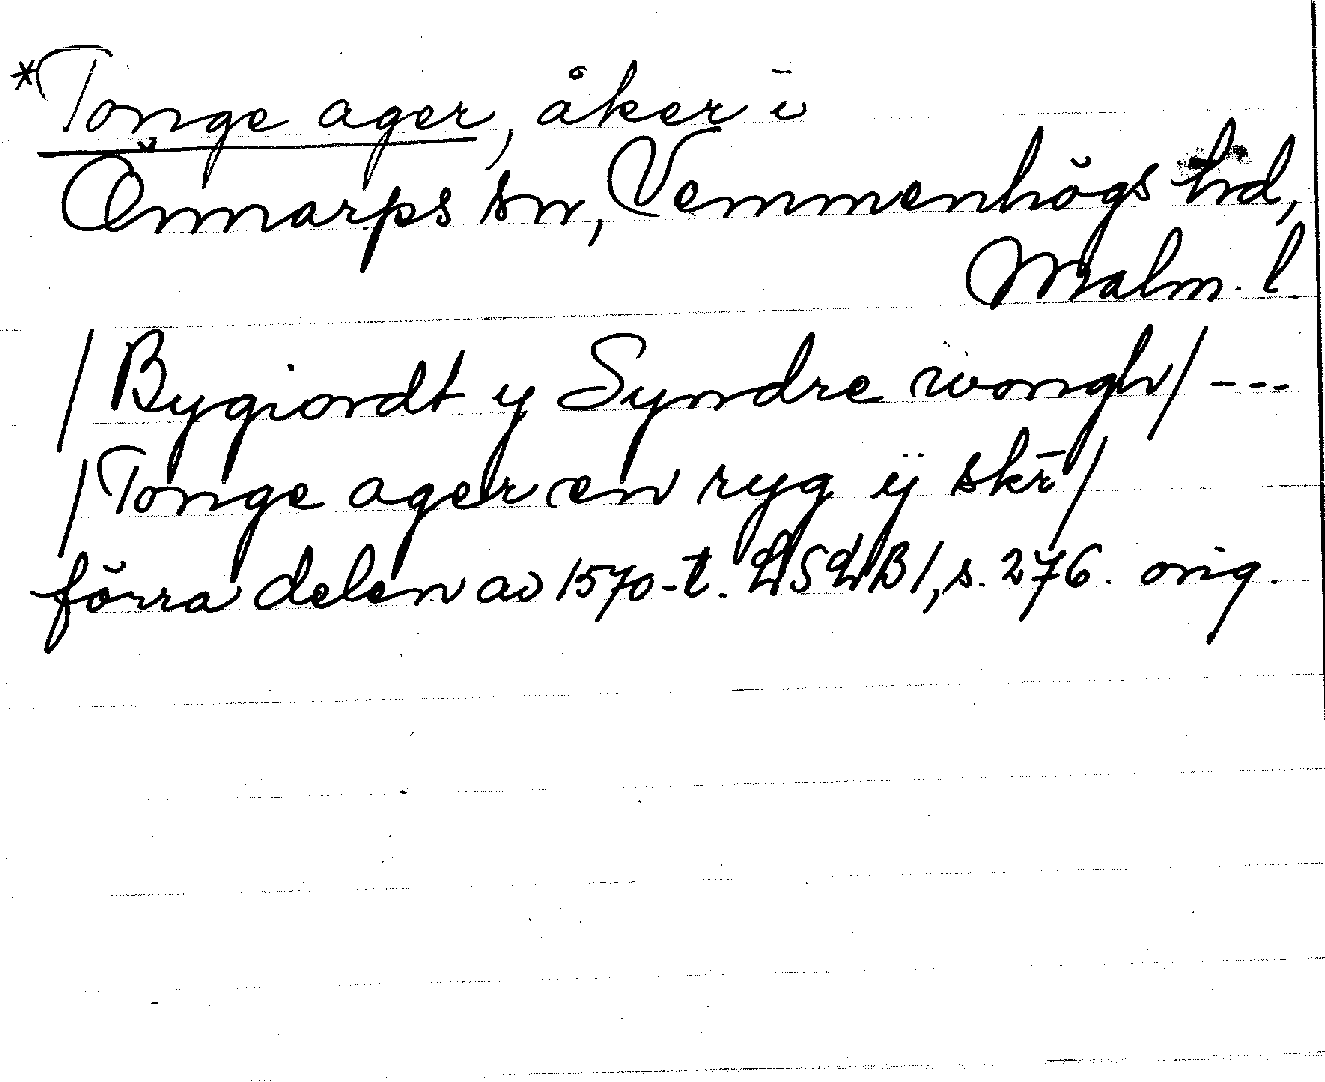 *Tonge ager, åker i
Önnarps sn, Vemmenhögs hd,
Malm. l.
/Bygiordt y Syndre wongh/ ---
/Tonge ager en ryg ÿ skr̄/
förra delen av 1570-t. LSLB 1, s. 276. orig.